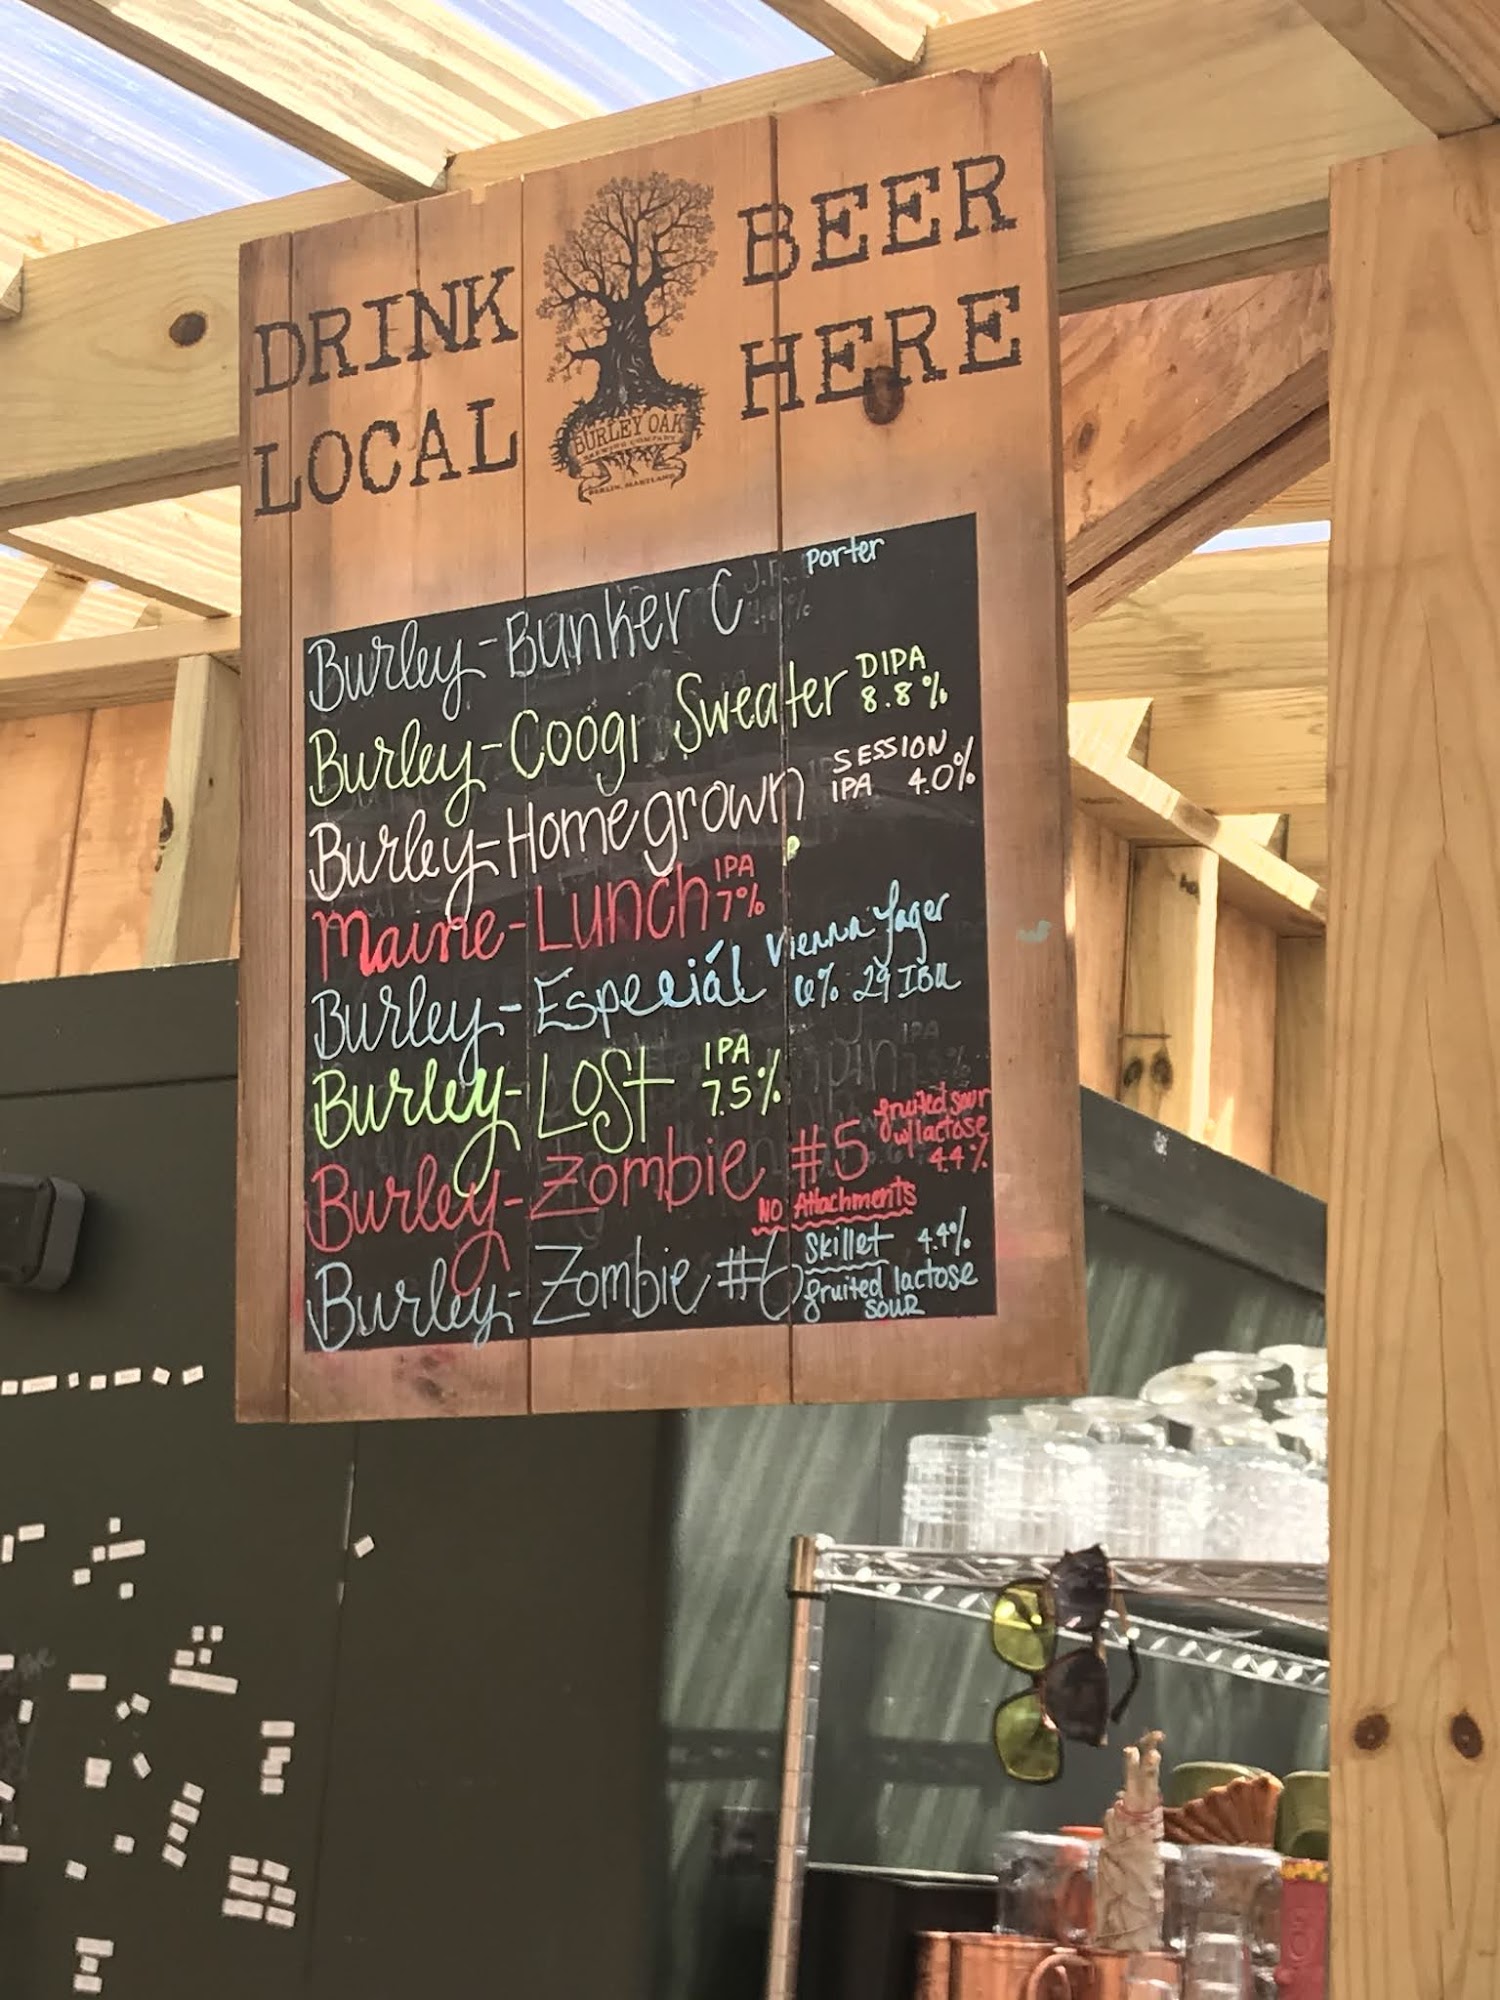 DRINK
LOCAL
BEER
HERE
BURLEY OAK
BREWING COMPANY
BERLIN, MARYLAND
Burley-Bunker C Porter
Burley-Coogi Sweater DIPA
8.8%
Burley-Homegrown SESSION
IPA 4.0%
Maine-Lunch IPA
7%
Burley-Especiál Vienna Lager
6% 29 IBU
Burley-Lost IPA
7.5%
Burley-Zombie #5 fruited sour
w/lactose
4.4%
NO Attachments
Burley-Zombie #6 Skillet 4.4%
fruited lactose
SOUR